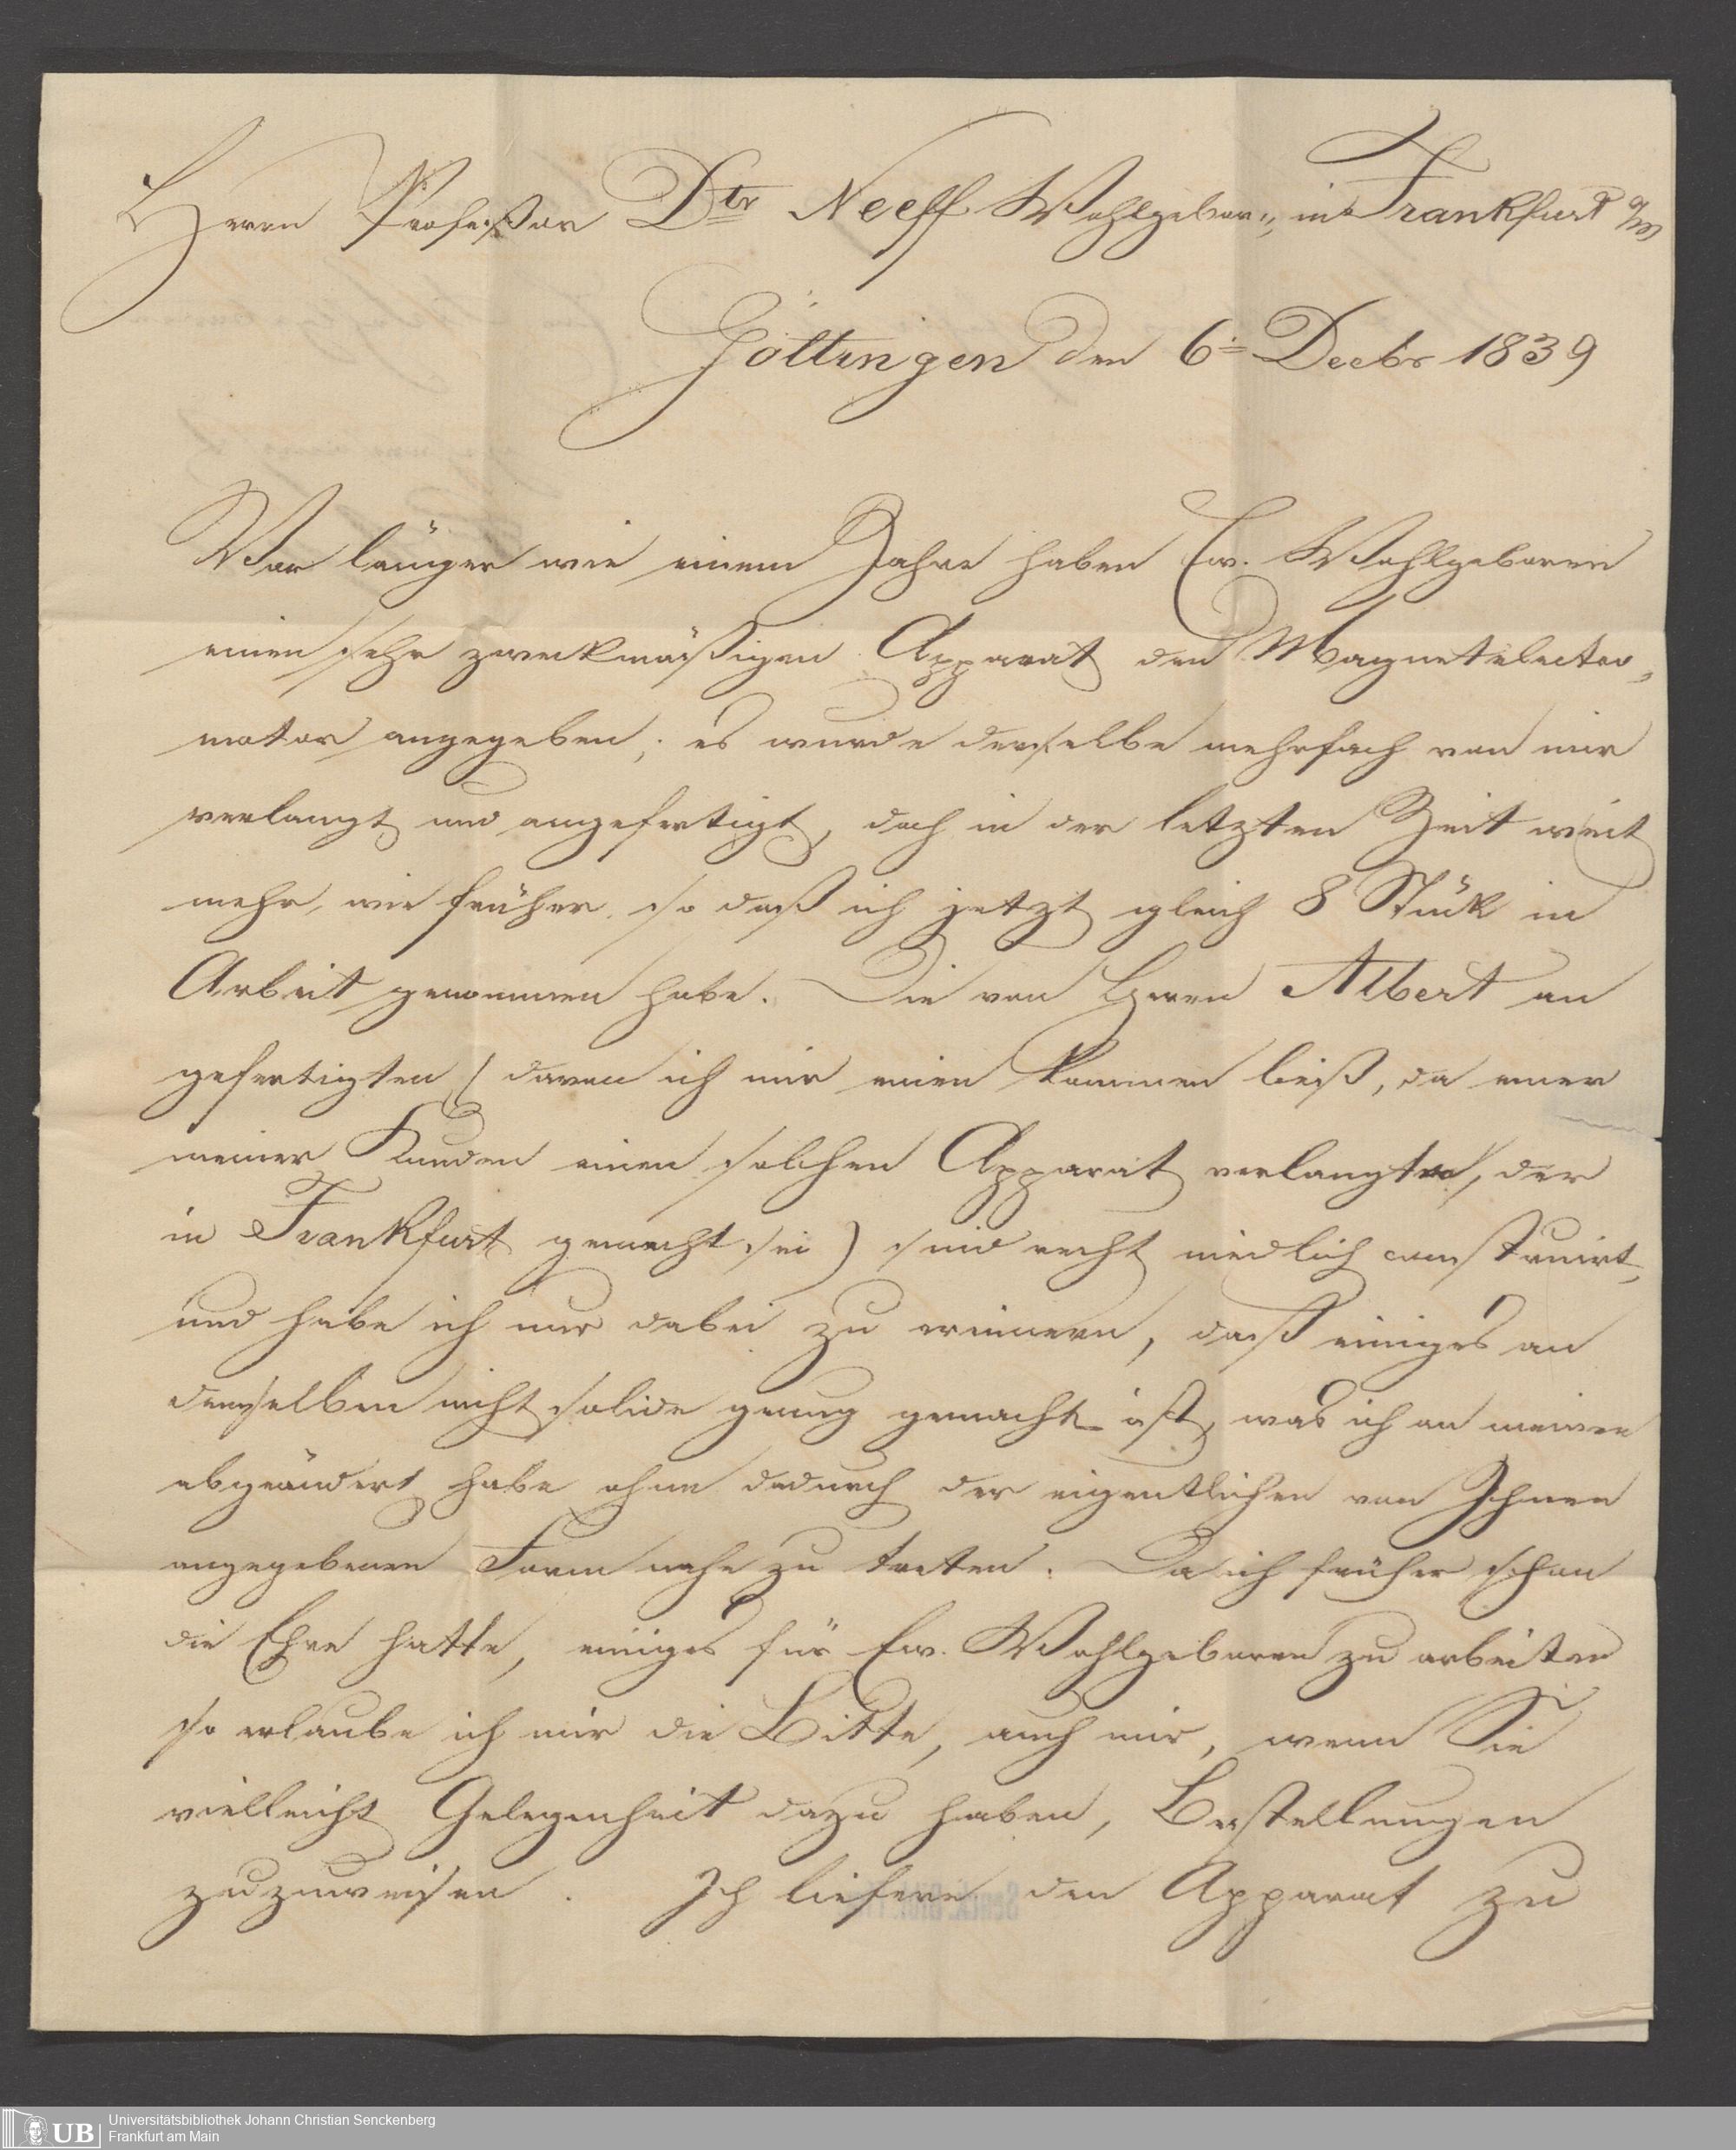 Herrn Professor Dtr Neeff Wohlgebor: in Frankfurt a/m
Göttingen den 6= Decbr 1839
Vor länger wie einem Jahre haben Ew. Wohlgeboren
einen sehr zweckmäßigen Apparat den Magnetelectro„
motor angegeben; es wurde derselbe mehrfach von mir
verlangt und angefertigt, doch in der letzten Zeit weit
mehr, wie früher, so daß ich jetzt gleich 8 Stück in
Arbeit genommen habe. Die von Herrn Albert an
gefertigten (davon ich mir einen kommen ließ, da einer
meiner Kunden einen solchen Apparat verlangte, der
in Frankfurt gemacht sei) sind recht niedlich construirt,
und habe ich nur dabei zu erinnern, daß einiges an
denselben nicht solide genug gemacht ist, was ich an meinen
abgeändert habe ohne dadurch der eigentlichen von Ihnen
angegebenen Form nahe zu treten. Da ich früher schon
die Ehre hatte, einiges für Ew. Wohlgeboren zu arbeiten
so erlaube ich mir die Bitte, auch mir, wenn Sie
vielleicht Gelegenheit dazu haben, Bestellungen
zuzuweisen. Ich liefere den Apparat zu
UB Universitätsbibliothek Johann Christian Senckenberg
Frankfurt am Main